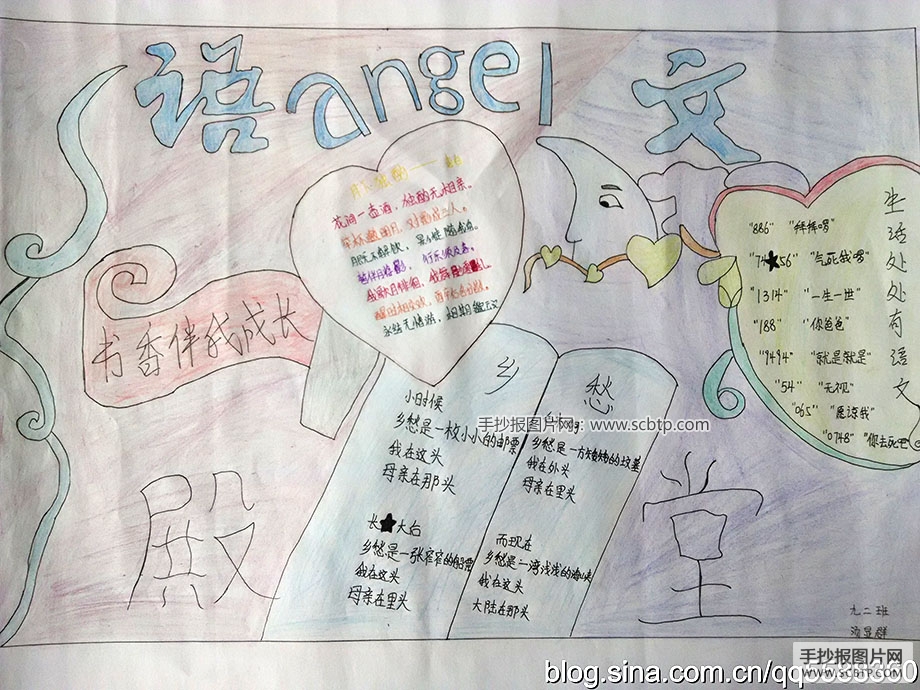 语angel文
月下独酌——李白
花间一壶酒，独酌无相亲。
举杯邀明月，对影成三人。
月既不解饮，影徒随我身。
暂伴月将影，行乐须及春。
永结无情游，相期邈云汉
书香伴我成长
乡愁
小时候
乡愁是一枚小小的邮票
我在这头
母亲在那头
长★大后
乡愁是一张窄窄的船票
我在这头
母亲在里头
乡愁是一方矮矮的坟墓
我在外头
母亲在里头
而现在
乡愁是一湾浅浅的海峡
我在这头
大陆在那头
生活处处有语文
"886" "拜拜啰"
"74★56" "气死我啰"
"1314" "一生一世"
"188" "你爸爸"
"9494" "就是就是"
"54" "无视"
"065" "原谅我"
"0748" "你去死吧"
殿堂
九二班
手抄报图片网: www.scbtp.com
手抄报图片网
WWW.SCBTP.COM